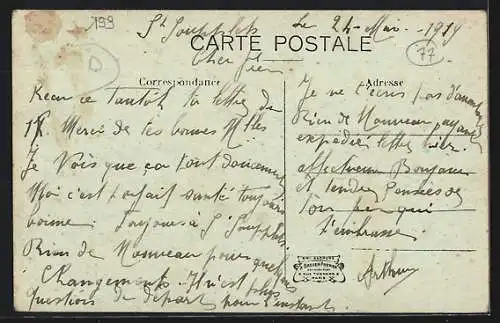 199
St Soupplets le 24 Mai 1915
CARTE POSTALE
77
D
Correspondance
Adresse
Cher
Recu ce tantôt ta lettre du
Merci de tes bonnes
Je Vois que ça tout doucement
Moi c'est parfait santé toujours
bonne Toujours à St Soupplets
Rien de Nouveau pour quelques
Changements. Il n'est plus
question de départ pour l'instant.
Je ne t'écris pas d'avantage
Rien de Nouveau ayant
expédié lettre hier.
affectueux Bonjour
et tendres Pensées de
ton qui
t'embrasse
Arthur
PARIS